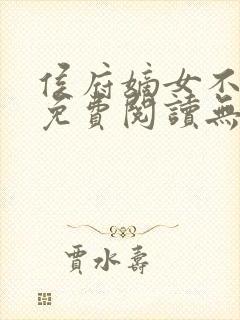 侯府嫡女不
免費閱讀無
賈水壽